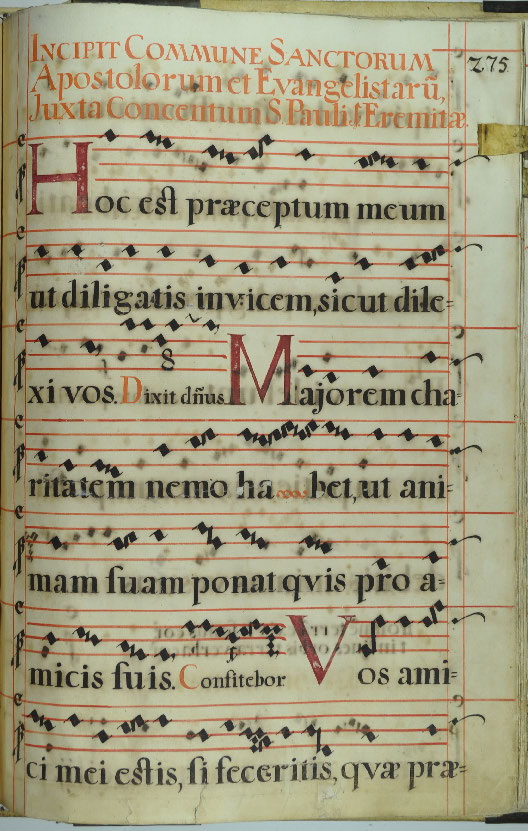 INCIPIT COMMUNE SANCTORUM
275
Apostolorum et Evangelistarū,
Juxta Concentum S. Pauli. j. Eremitæ.
Hoc est præceptum meum
ut diligatis invicem, sicut dile=
xi vos. Dixit dn̄us 8 Majorem cha=
ritatem nemo ha bet, ut ani=
mam ſuam ponat qvis pro a=
micis ſuis. Confitebor Vos ami=
ci mei estis, ſi feceritis, qvæ præ=